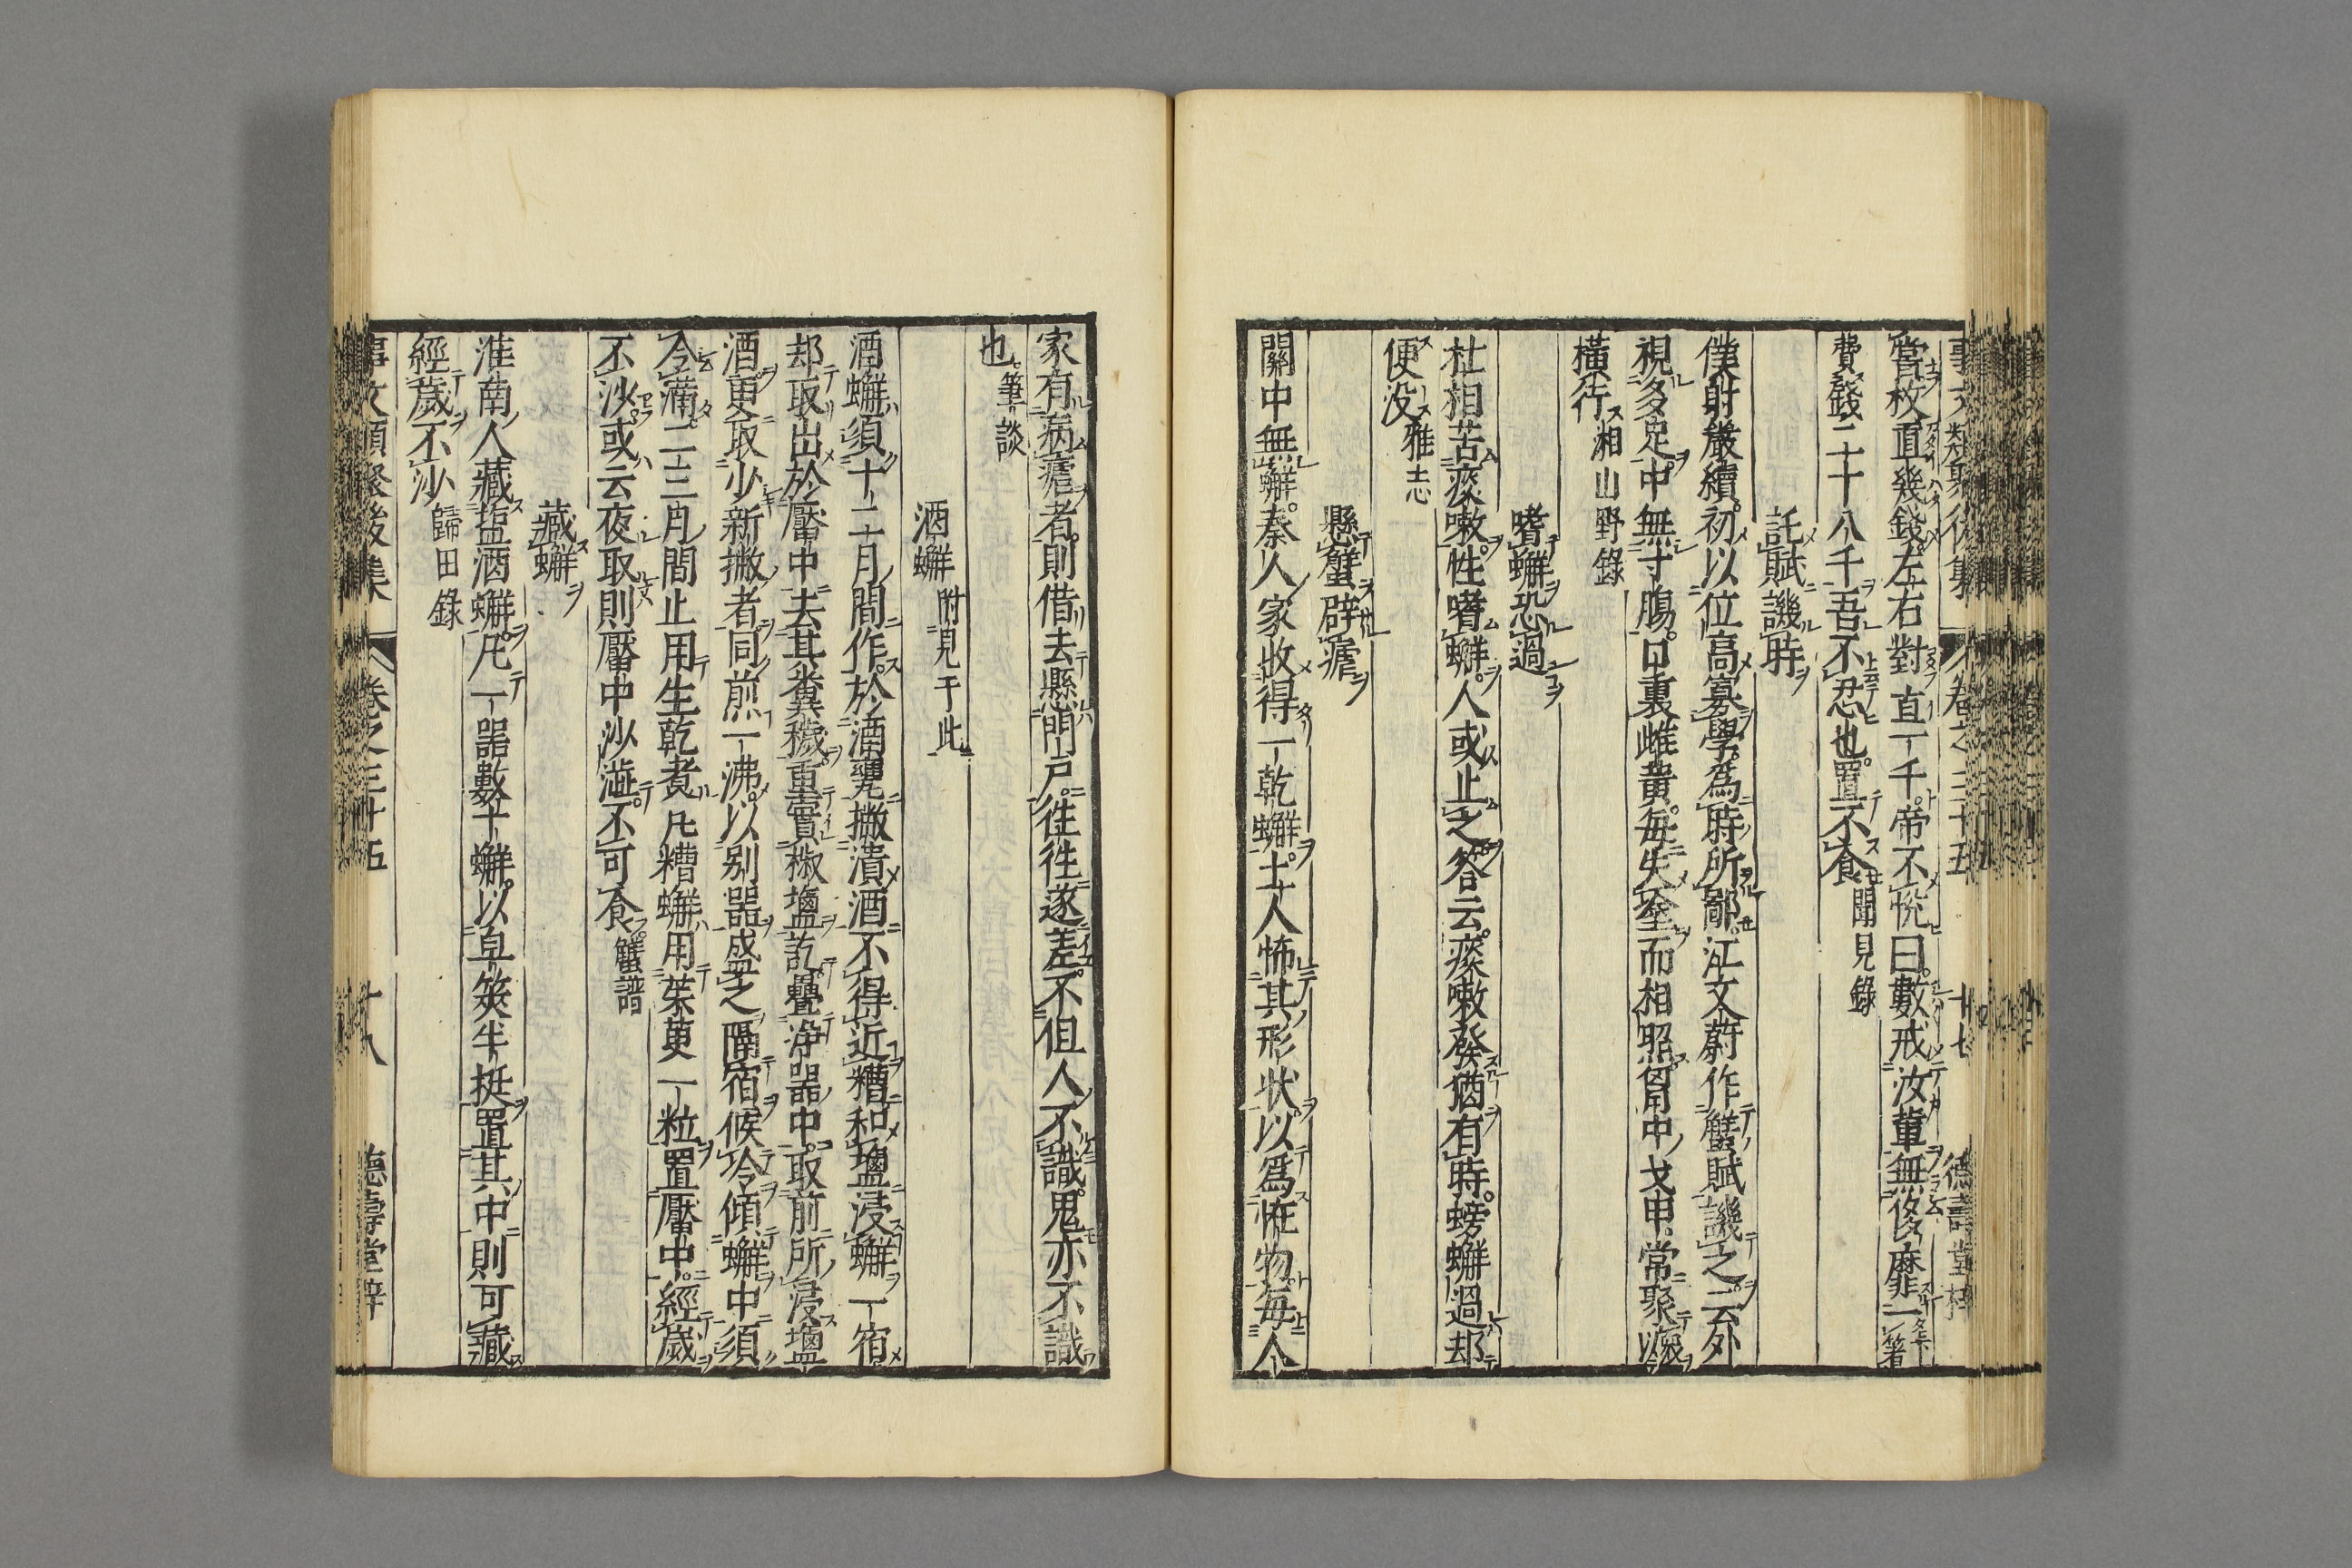 事文類聚後集 卷之三十五 廿七 德壽堂梓
當枚直幾錢左右對直一千帝不悅曰數戒汝輩無侈靡一箸
費錢二十八千吾不忍也置不食聞見錄
託賦譏時
僕射嚴續初以位高寡學爲時所鄙江文蔚作蟹賦譏之云外
視多足中無寸膓口裏雌黄毎失途而相照胷中戈甲常聚衆以
橫行湘山野錄
嗜蠏恐過
杜相苦痰嗽性嗜蠏人或止之答云痰嗽發猶有時螃蠏過却
便没雅志
懸蟹辟瘧
關中無蠏秦人家收得一乾蠏土人怖其形状以爲恠物毎人
家有病瘧者則借去懸門戸徃徃遂差不但人不識鬼亦不識
也筆談
酒蠏附見于此
酒蠏須十二月間作於酒甕撇漬酒不得近糟和塩浸蠏一宿
却取出於靨中去其糞穢重實椒塩訖疊净器中取前所浸塩
酒更取少新撇者同煎一沸以别器盛之隔宿候冷傾蠏中須
令滿二三月間止用生乾煮凡糟蠏用茱萸一粒置靨中經歲
不沙或云夜取則靨中沙澁不可食蟹譜
藏蠏
淮南人藏塩酒蠏凡一器數十蠏以皁筴半挺置其中則可藏
經歲不沙歸田錄
事文類聚後集 卷之三十五 廿八 德壽堂梓